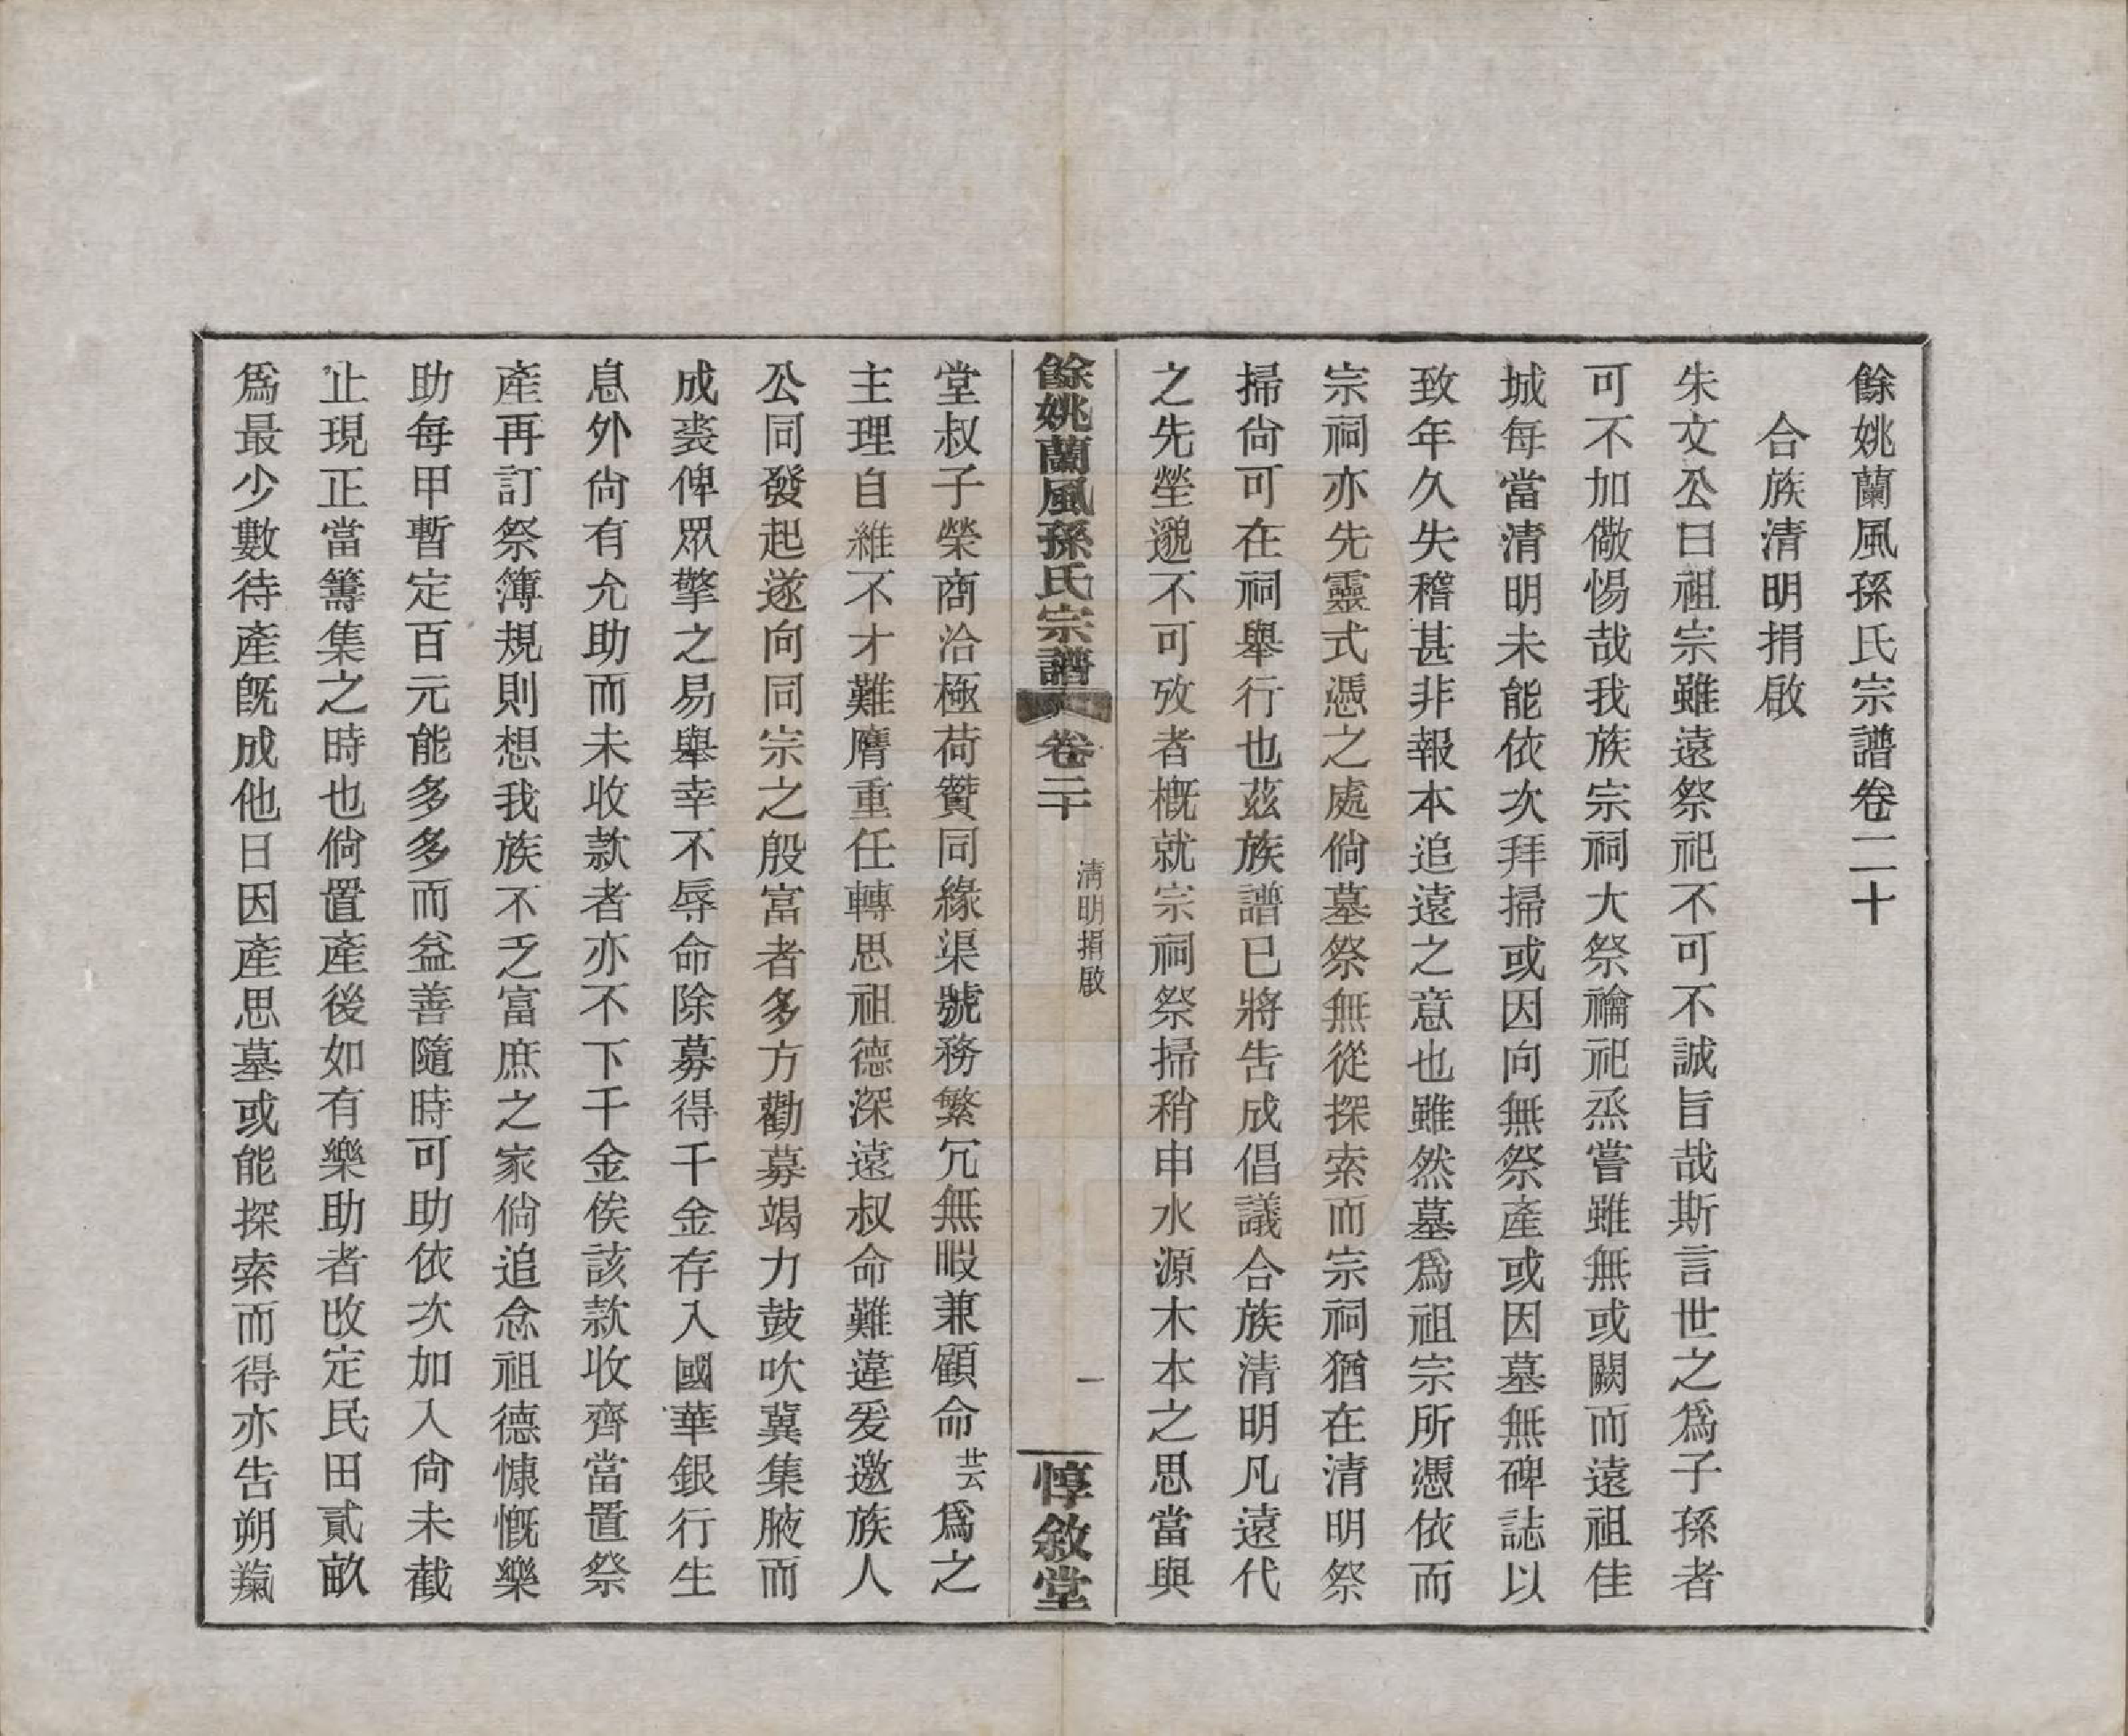 餘姚蘭風孫氏宗譜卷二十
合族清明捐啟
朱文公曰祖宗雖遠祭祀不可不誠旨哉斯言世之爲子孫者
可不加儆惕哉我族宗祠大祭禴祀烝嘗雖無或闕而遠祖佳
城每當清明未能依次拜掃或因向無祭產或因墓無碑誌以
致年久失稽甚非報本追遠之意也雖然墓爲祖宗所憑依而
宗祠亦先靈式憑之處倘墓祭無從探索而宗祠猶在清明祭
掃尙可在祠舉行也茲族譜已將告成倡議合族清明凡遠代
之先塋邈不可攷者槪就宗祠祭掃稍申水源木本之思當與
餘姚蘭風孫氏宗譜
卷二十
清明捐啟
一
惇敘堂
堂叔子榮商洽極荷贊同緣渠號務繁冗無暇兼顧命芸爲之
主理自維不才難膺重任轉思祖德深遠叔命難違爰邀族人
公同發起遂向同宗之殷富者多方勸募竭力鼓吹冀集腋而
成裘俾眾擎之易舉幸不辱命除募得千金存入國華銀行生
息外尙有允助而未收款者亦不下千金俟該款收齊當置祭
產再訂祭簿規則想我族不乏富庶之家倘追念祖德慷慨樂
助每甲暫定百元能多多而益善隨時可助依次加入尙未截
止現正當籌集之時也倘置產後如有樂助者改定民田貳畝
爲最少數待產旣成他日因產思墓或能探索而得亦告朔羲